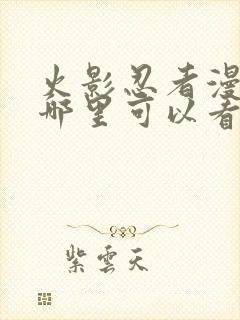 火影忍者漫
哪里可以看
紫雲天